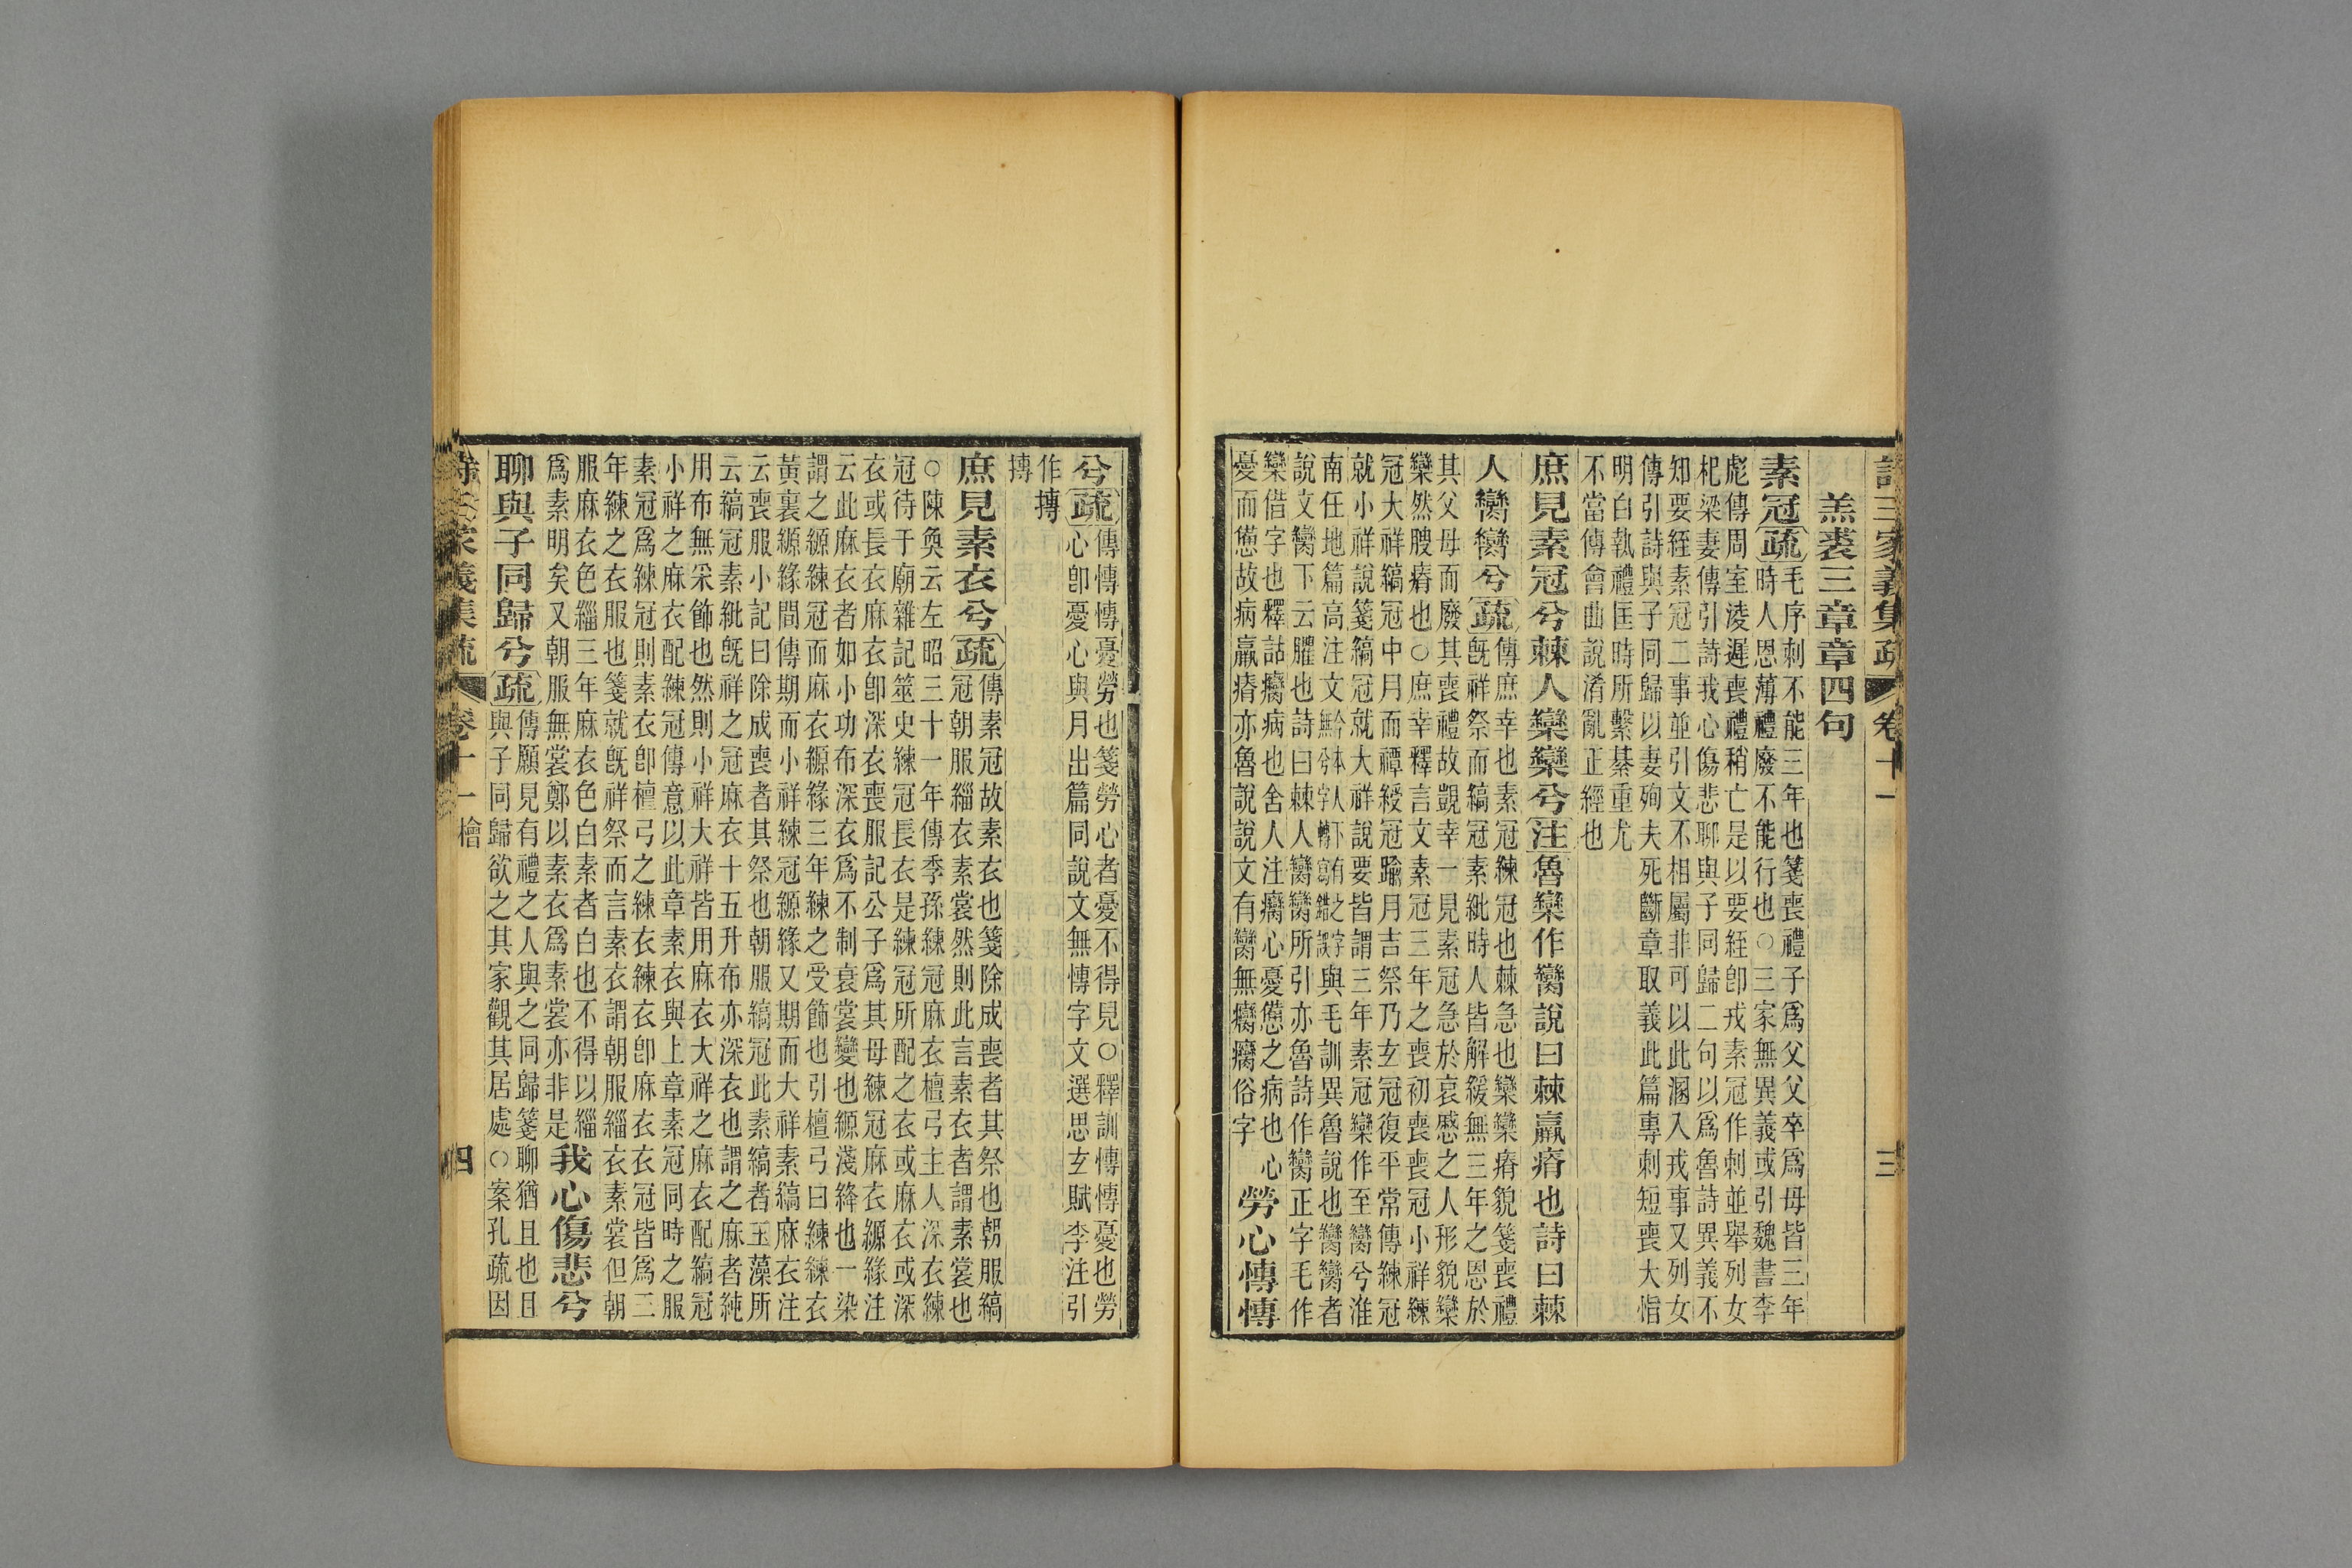 詩三家義集疏 卷十一 三
羔裘三章章四句
素冠疏毛序刺不能三年也箋喪禮子爲父父卒爲母皆三年
時人恩薄禮廢不能行也○三家無異義或引魏書李
彪傳周室淩遲喪禮稍亡是以要絰卽戎素冠作刺並舉列女
杞梁妻傳引詩我心傷悲聊與子同歸二句以爲魯詩異義不
知要絰素冠二事並引文不相屬非可以此溷入戎事又列女
傳引詩與子同歸以妻殉夫死斷章取義此篇專刺短喪大恉
明白執禮匡時所繫綦重尤
不當傅會曲說淆亂正經也
庶見素冠兮棘人欒欒兮注魯欒作臠說曰棘羸瘠也詩曰棘
人臠臠兮疏傳庶幸也素冠練冠也棘急也欒欒瘠貌箋喪禮
旣祥祭而縞冠素紕時人皆解緩無三年之恩於
其父母而廢其喪禮故覬幸一見素冠急於哀慼之人形貌欒
欒然膄瘠也○庶幸釋言文素冠三年之喪初喪喪冠小祥練
冠大祥縞冠中月而禫綅冠踰月吉祭乃玄冠復平常傳練冠
就小祥說箋縞冠就大祥說要皆謂三年素冠欒作至臠兮淮
南任地篇高注文 與毛訓異魯說也臠臠者
說文臠下云臞也詩曰棘人臠臠所引亦魯詩作臠正字毛作
欒借字也釋詁癵病也舍人注癵心憂憊之病也心
憂而憊故病羸瘠亦魯說說文有臠無癵癵俗字 勞心慱慱
兮疏傳慱慱憂勞也箋勞心者憂不得見○釋訓慱慱憂也勞
心卽憂心與月出篇同說文無慱字文選思玄賦李注引
作摶
摶
庶見素衣兮疏傳素冠故素衣也箋除成喪者其祭也朝服縞
冠朝服緇衣素裳然則此言素衣者謂素裳也
○陳奐云左昭三十一年傳季孫練冠麻衣檀弓主人深衣練
冠待于廟雜記筮史練冠長衣是練冠所配之衣或麻衣或深
衣或長衣麻衣卽深衣喪服記公子爲其母練冠麻衣縓緣注
云此麻衣者如小功布深衣爲不制衰裳變也縓淺絳也一染
謂之縓練冠而麻衣縓緣三年練之受飾也引檀弓曰練練衣
黃裏縓緣間傳期而小祥練冠縓緣又期而大祥素縞麻衣注
云喪服小記曰除成喪者其祭也朝服縞冠此素縞者玉藻所
云縞冠素紕旣祥之冠麻衣十五升布亦深衣也謂之麻者純
用布無采飾也然則小祥大祥皆用麻衣大祥之麻衣配縞冠
小祥之麻衣配練冠傳意以此章素衣與上章素冠同時之服
素冠爲練冠則素衣卽檀弓之練衣練衣卽麻衣衣冠皆爲三
年練之衣服也箋就旣祥祭而言素衣謂朝服緇衣素裳但朝
服麻衣色緇三年麻衣色白素者白也不得以緇
爲素明矣又朝服無裳鄭以素衣爲素裳亦非是 我心傷悲兮
聊與子同歸兮疏傳願見有禮之人與之同歸箋聊猶且也且
與子同歸欲之其家觀其居處○案孔疏因
詩三家義集疏 卷十一 檜 四